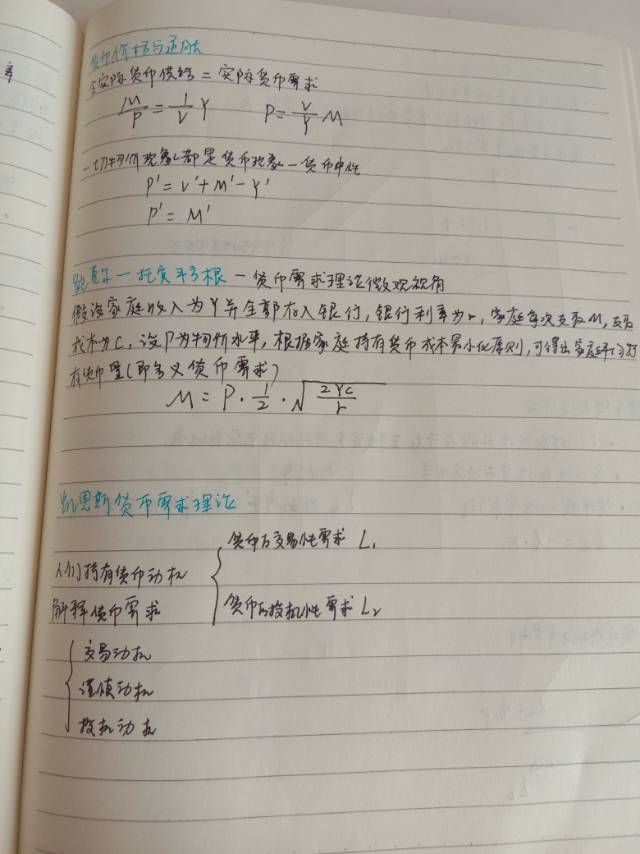 货币价格与通胀
令实际货币供给=实际货币需求
M/P = 1/V Y  P = V/Y M
一切物价现象都是货币现象—货币中性
P' = V' + M' - Y'
P' = M'
鲍莫尔—托宾平方根—货币需求理论微观视角
假设家庭收入为Y并全部存入银行,银行利率为r,家庭每次支取M,支取
成本为C,设P为物价水平,根据家庭持有货币成本最小化原则,可得出家庭平均持
有货币量(即名义货币需求)
M = P · 1/2 · √(2YC/r)
凯恩斯货币需求理论
人们持有货币动机
解释货币需求
货币的交易性需求 L₁
货币的投机性需求 L₂
交易动机
谨慎动机
投机动机